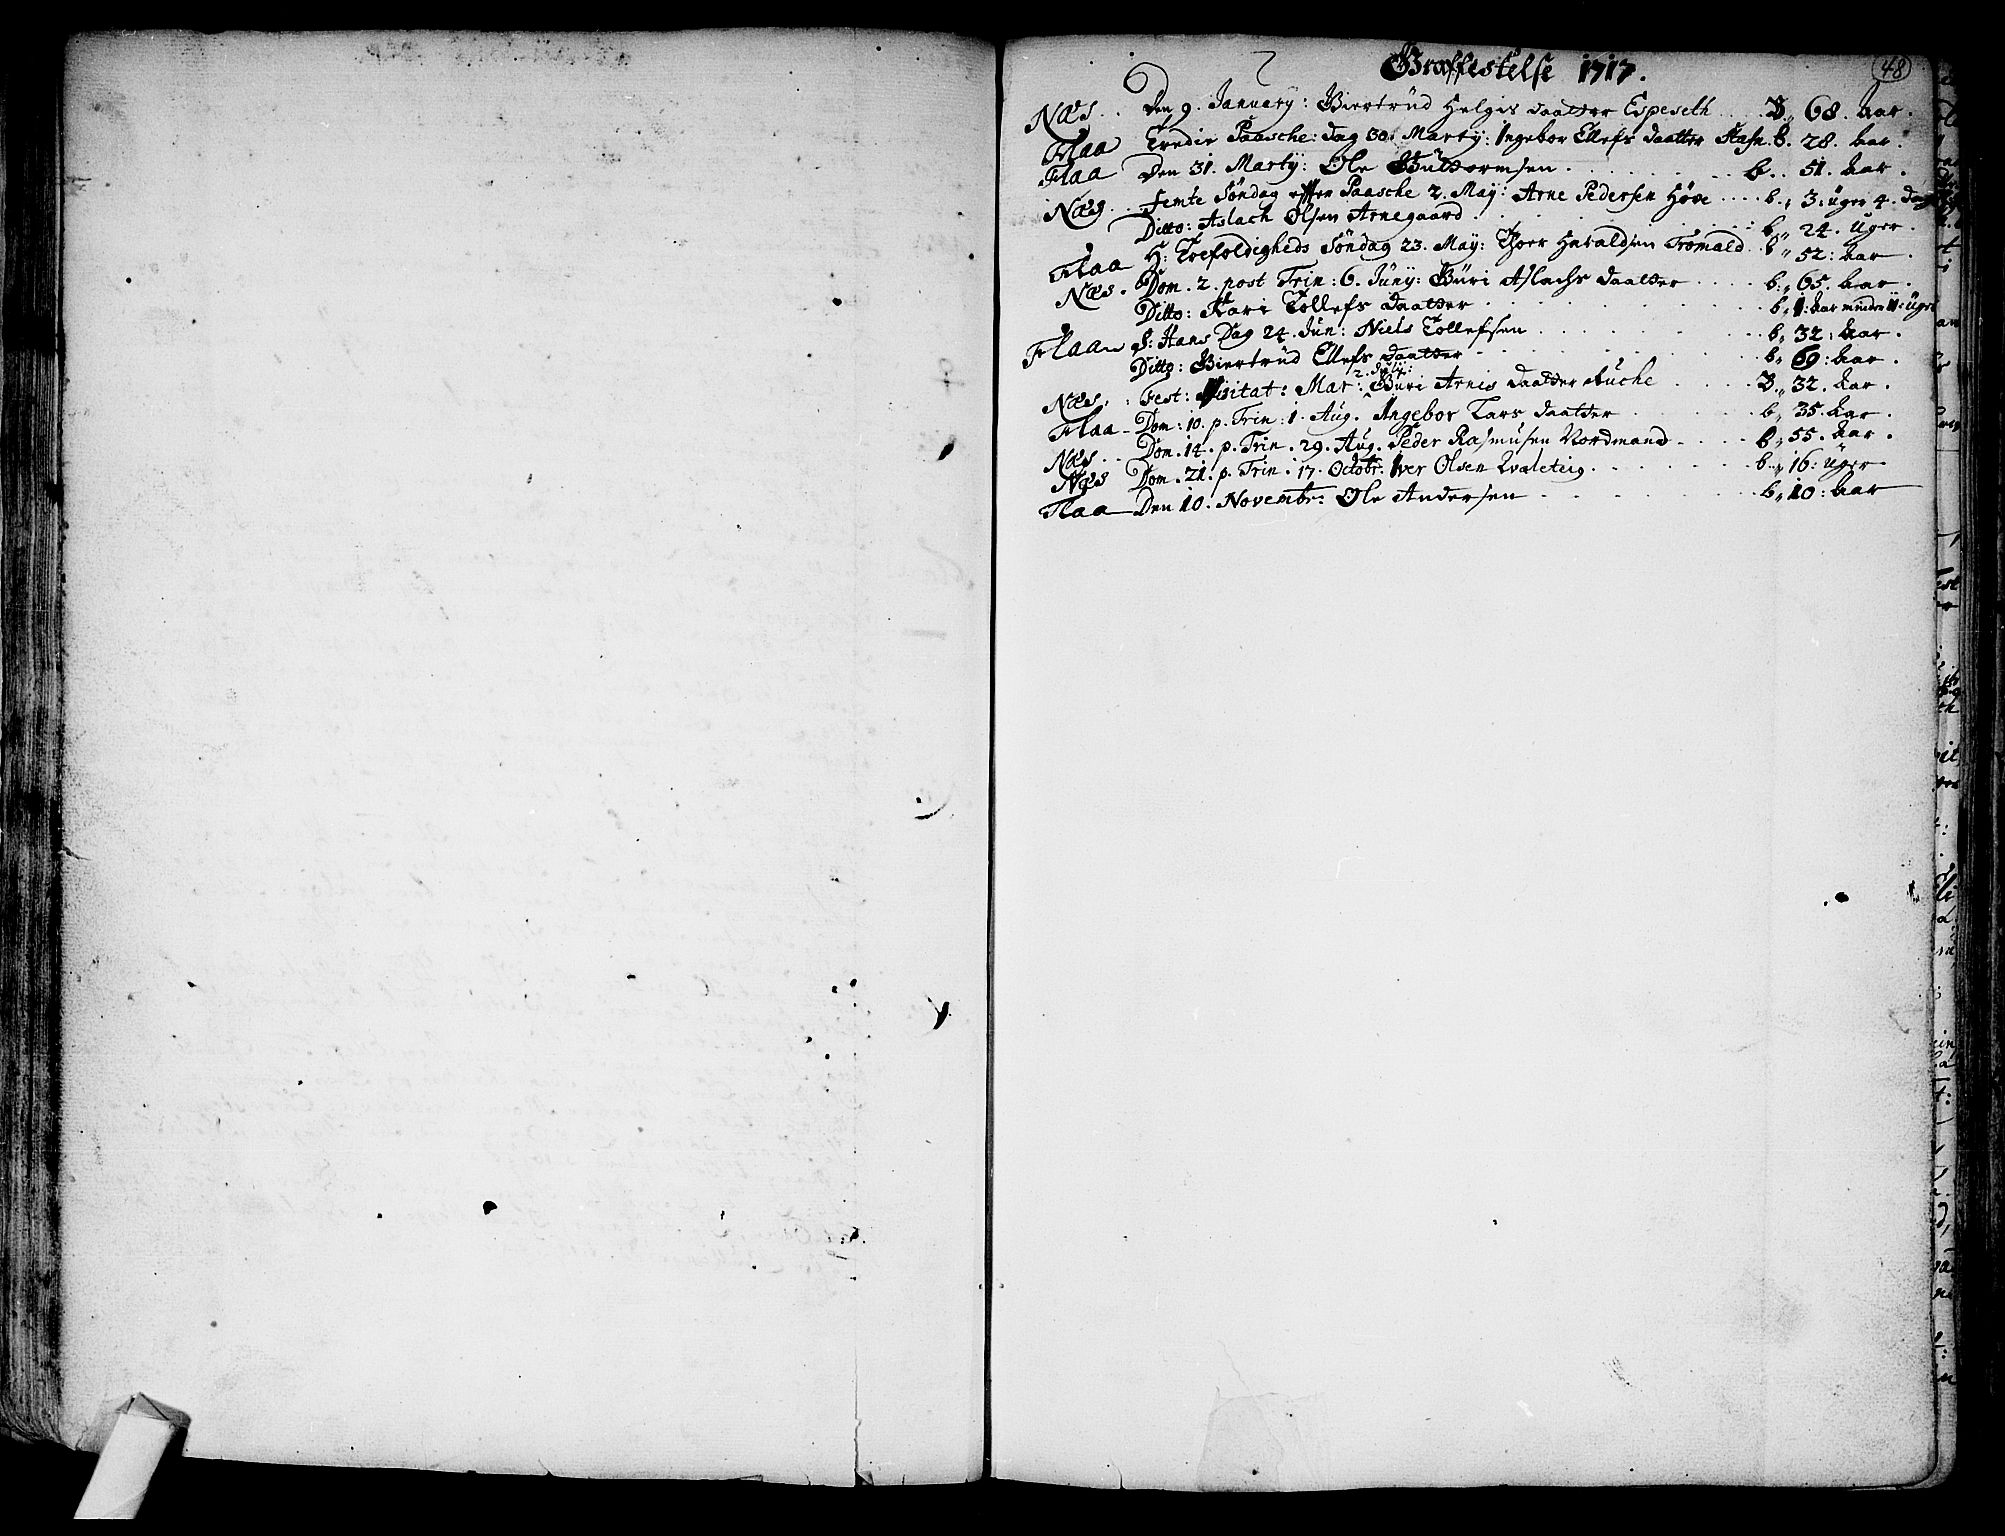 Græffestelse 1717.
48
Næs . . Den 9. January: Biertrüd Helgis daatter Espeseth . . . . B. 68. Aar.
Flaa Tredie Paasche: dag 30. Marty: Ingebor Ellefs daatter Aasn. b. 28. Aar.
Flaa Den 31. Marty: Ole Gulbormsen . . . . . . . b. . 51. Aar.
Næs . . Femte Søndag efter Paasche 2. May: Arne Pedersen Høve . . . . b. 3: uger 4. dag
Ditto: Aslach Olsen Arnegaard . . . . . . . . b. 24. Uger.
Flaa H: Trefoldigheds Søndag 23. May: Thoer Haraldsen Trømald. b. 52: Aar.
Næs. Dom. 2. post Trin: 6. Juny: Guri Aslachs daatter . . . . b. 65. Aar.
Ditto: Kari Tollefs daatter . . . . . . . . b. 1: Aar mindre 11: Uger
Flaa S: Hans Dag 24. Jun: Niels Tollefsen . . . . . . . b. 32: Aar.
Ditto: Biertrüd Ellefs daatter . . . . . . . . b. 69: Aar.
Næs. : Fest: Visitat: Mar: 2. July: Guri Arnis daatter Ruche . . . . B. 32. Aar.
Flaa - Dom: 10. p. Trin: 1. Aug. Ingebor Lars daatter . . . . . b. 35. Aar.
Næs . . Dom. 14. p. Trin. 29. Aug. Peder Rasmusen Nordmand . . . . b. 55. Aar.
Næs Dom. 21. p. Trin. 17. Octobr: Iver Olsen Qvæleteig . . . . . . b. 16: Uger
Flaa - Den 10. Novembr: Ole Andersen . . . . . . . b. 10: Aar